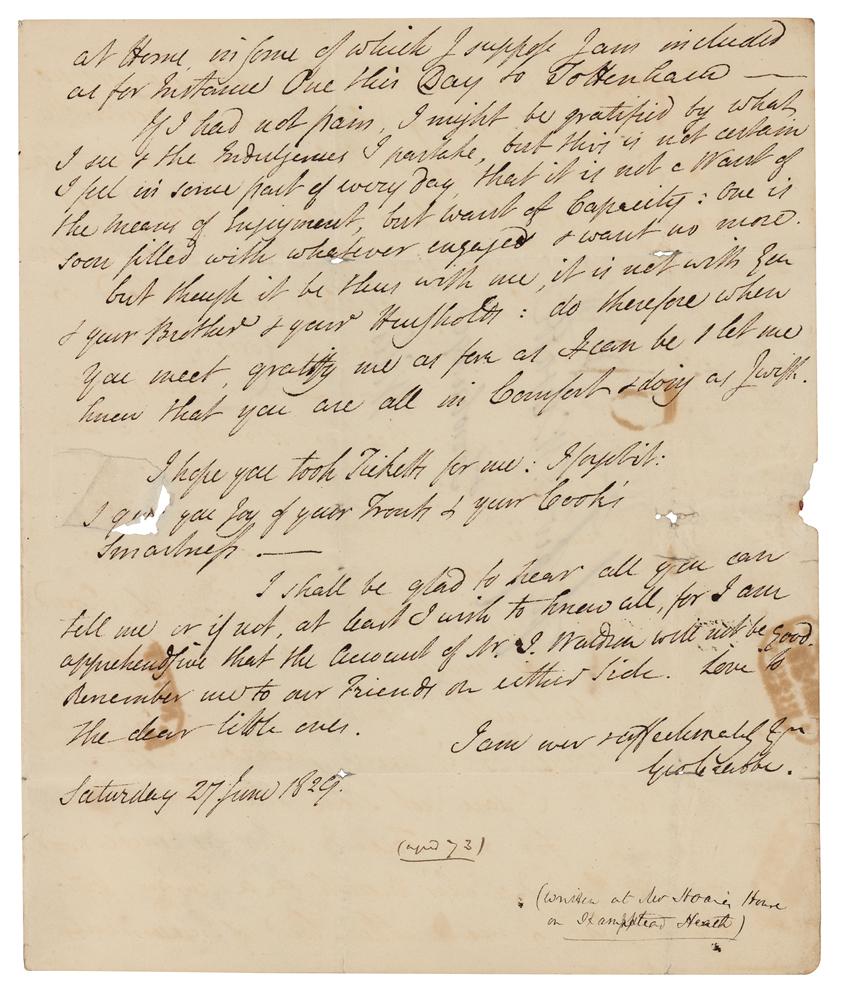 at Home, in some of which I suppose I am included
as for Instance One this Day to Tottenham —
If I had not pain, I might be gratified by what
I see & the Indulgences I partake, but this is not certain
I feel in some part of every Day, that it is not a Want of
the means of Enjoyment, but want of Capacity: One is
soon filled with whatever engaged & want no more.
but though it be thus with me, it is not with You
& your Brother & your Housholds: do therefore when
you meet, gratify me as far as I can be & let me
know that you are all in Comfort & doing as I wish.
I hope you took Ticketts for me: I forgot it:
I give you Joy of your Trouts & your Cook's
Smartness. —
I shall be glad to hear all you can
tell me or if not, at least I wish to know all, for I am
apprehensive that the Account of Mr. J. Waldron will not be good.
Remember me to our Friends on either Side. Love to
the dear little ones.
I am ever & affectionately Yrs
Geo Crabbe.
Saturday 27 June 1829.
(aged 73)
(written at Mr Hoare's House
on Hampstead Heath)